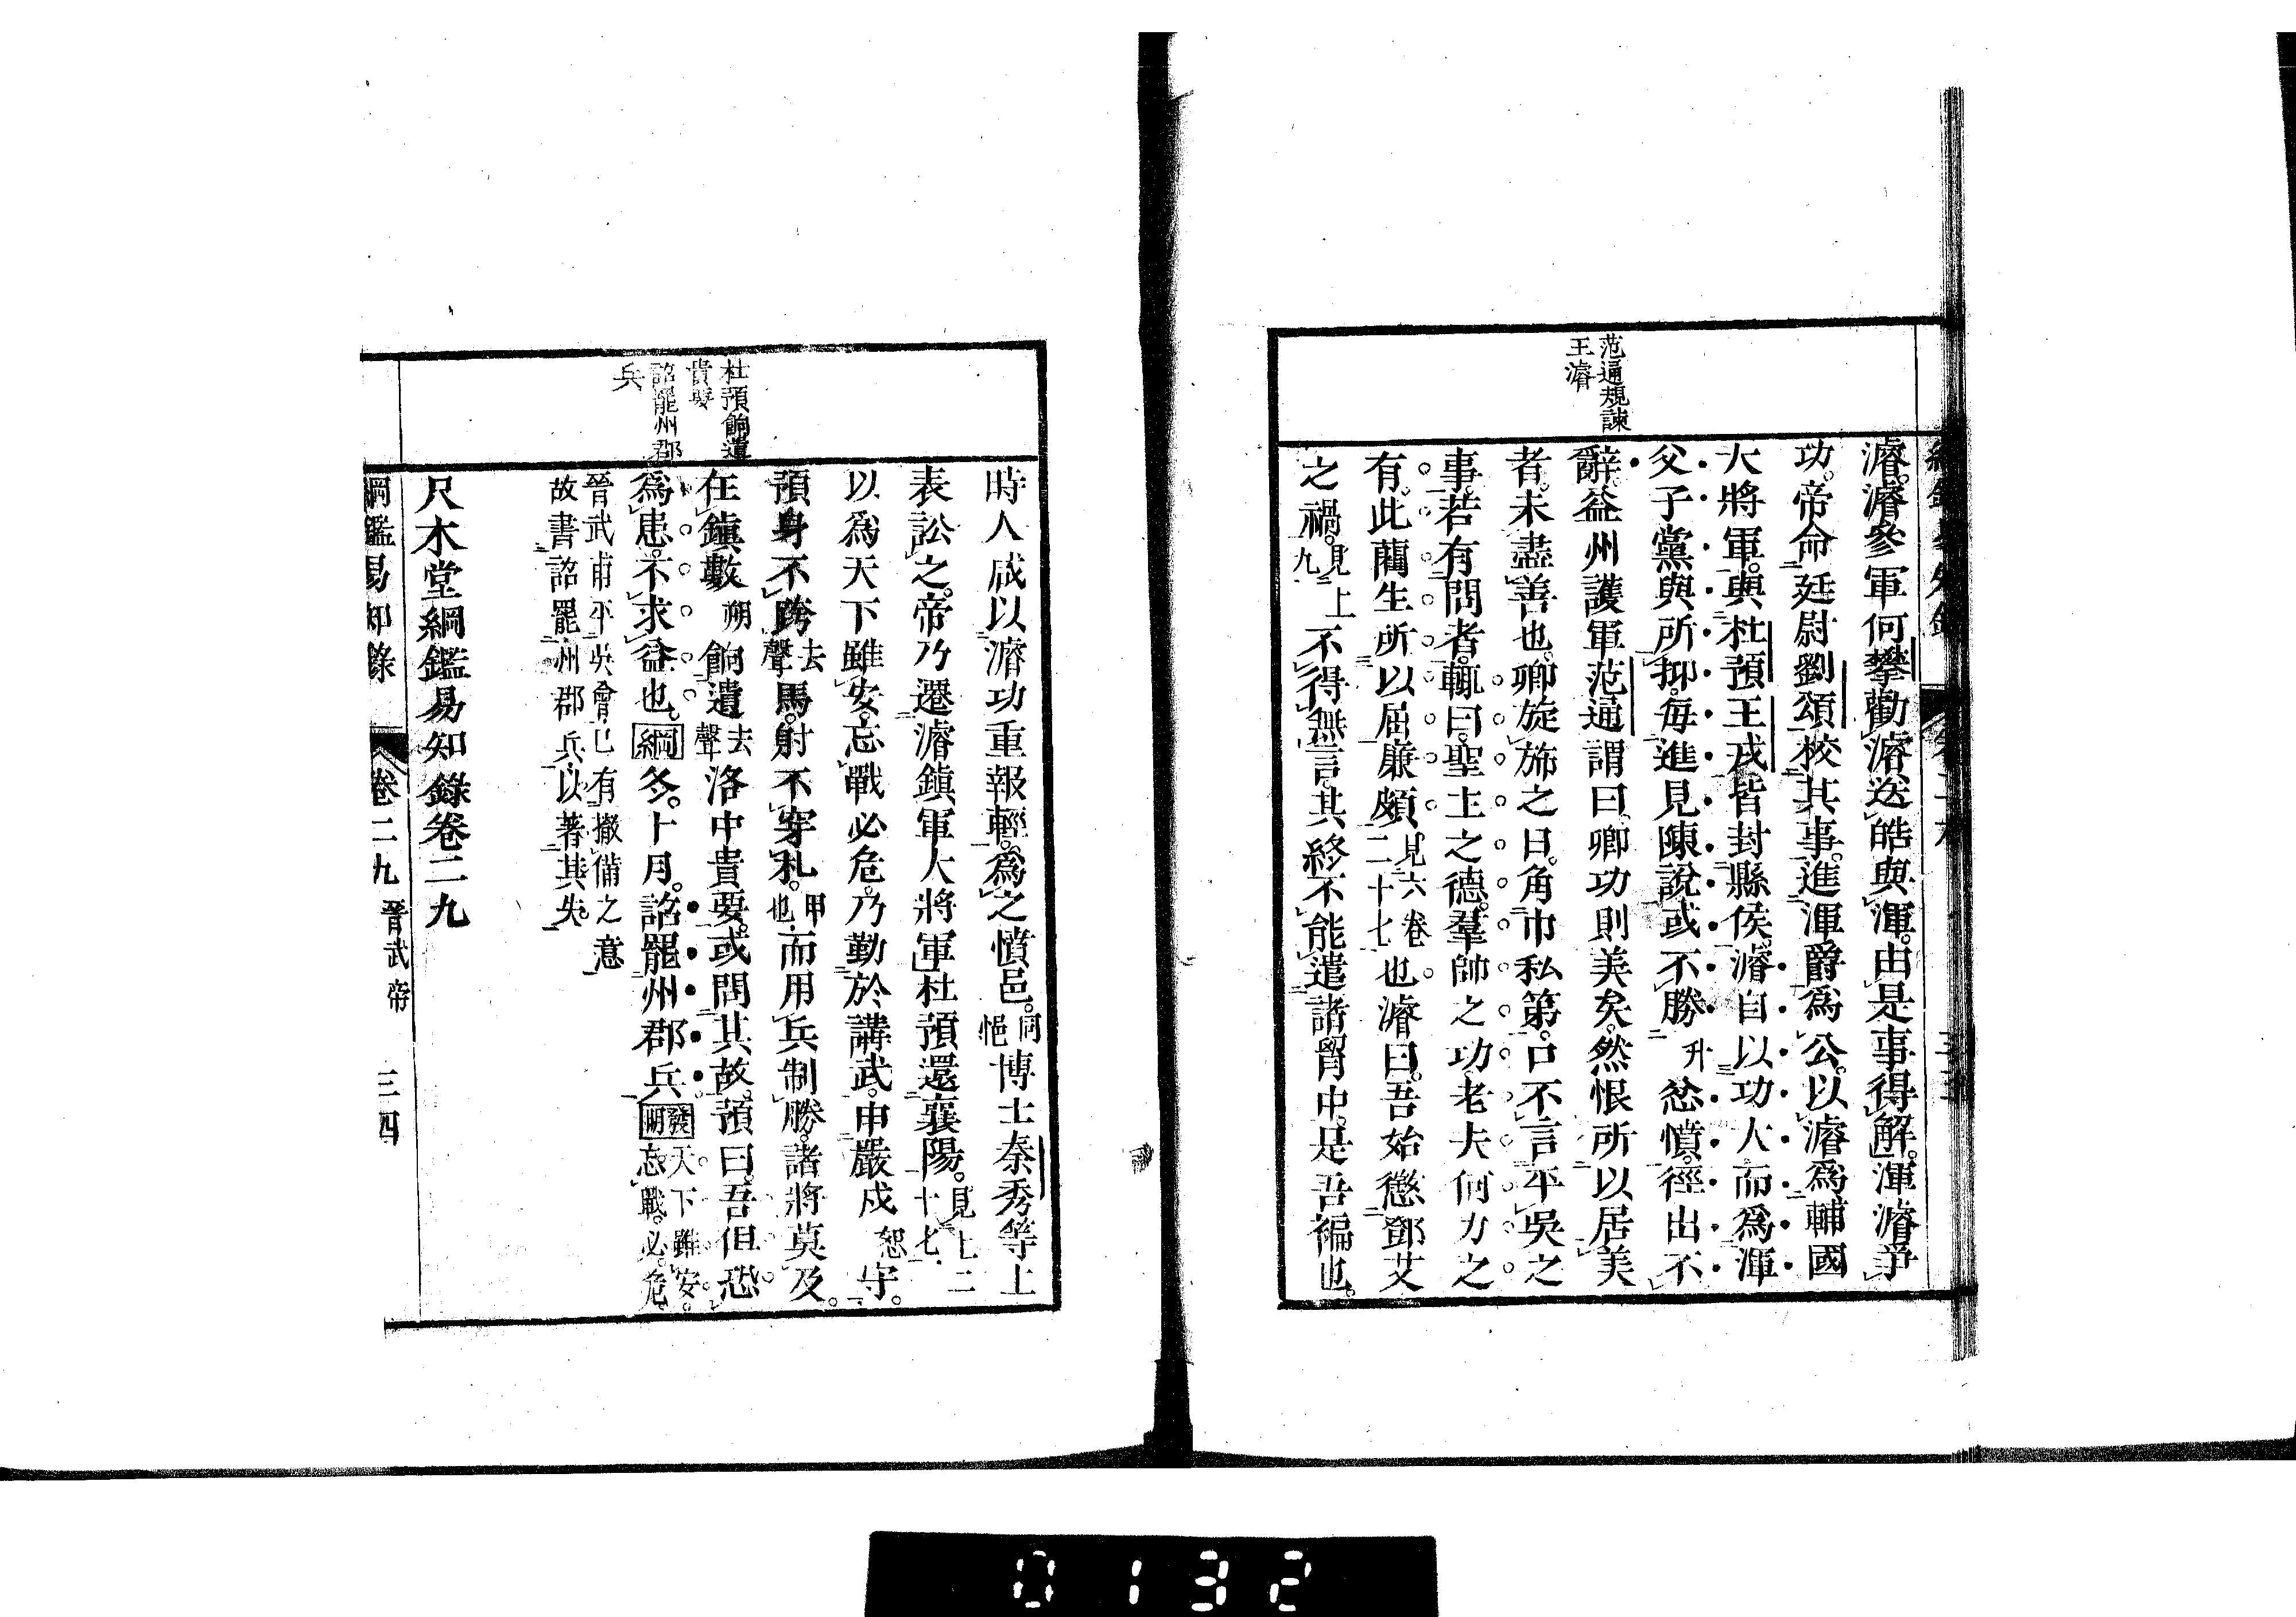 范通規諫
王濬
濬。濬參軍何攀勸濬送皓與渾。由是事得解。渾濬爭
功。帝命廷尉劉頌校其事。進渾爵爲公。以濬爲輔國
大將軍。與杜預王戎皆封縣侯。濬自以功大。而爲渾
父子黨與所抑。每進見陳說。或不勝升忿憤。徑出不
辭。益州護軍范通謂曰。卿功則美矣。然恨所以居美
者。未盡善也。卿旋斾之日。角巾私第。口不言平吳之
事。若有問者。輒曰。聖主之德。羣帥之功。老夫何力之
有。此藺生所以屈廉頗。見六卷二十七也濬曰。吾始懲鄧艾
之禍。見上九不得無言。其終不能遣諸胷中。是吾褊也。
杜預餉遺
貴要
詔罷州郡
兵
時人咸以濬功重報輕。爲之憤邑。同悒博士秦秀等上
表訟之。帝乃遷濬鎭軍大將軍杜預還襄陽。見上二十七
以爲天下雖安。忘戰必危。乃勤於講武。申嚴戍恕守。
預身不跨去聲馬。射不穿札。甲也而用兵制勝。諸將莫及。
在鎭數朔餉遺去聲洛中貴要。或問其故。預曰。吾但恐
爲患。不求益也。綱冬。十月。詔罷州郡兵發明天下雖安。忘戰。必危。
晉武甫平吳會已有撤備之意
故書詔罷州郡兵以著其失
尺木堂綱鑑易知錄卷二九
綱鑑易知錄 卷二九 晉武帝 三四
0132